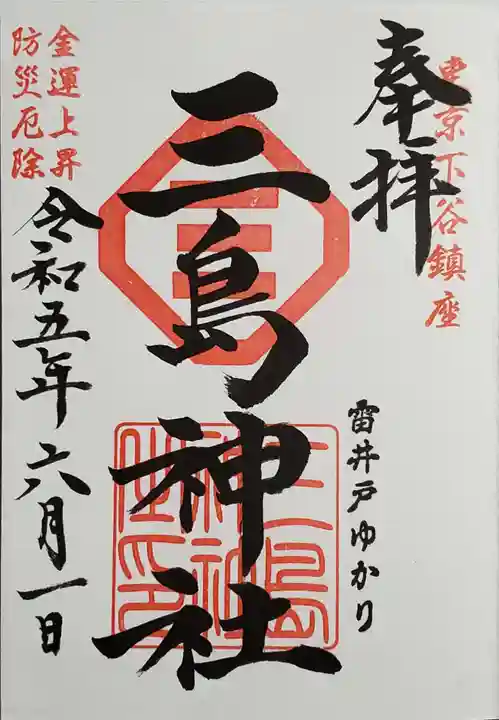 東京下谷鎮座
奉拝
雷井戸ゆかり
三島神社
三島
神社
之印
金運上昇
防災厄除
令和五年六月一日